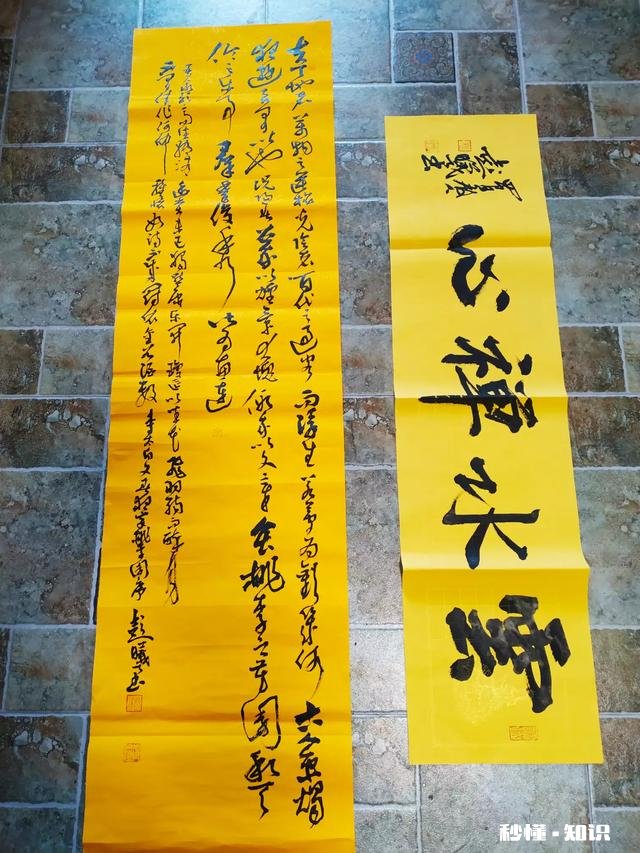 夫天地者萬物之逆旅光陰者百代之過客而浮生若夢為歡幾何古人秉燭
夜遊良有以也況陽春召我以煙景大塊假我以文章會桃李之芳園序天
倫之樂事群季俊秀為惠連
幽賞未已以坐花飛羽觴而醉月
何伸雅懷如詩不成罰依金谷酒數李太白文春夜宴桃李園序
彭曦书
雲水禪心
彭曦书
秒懂·知识